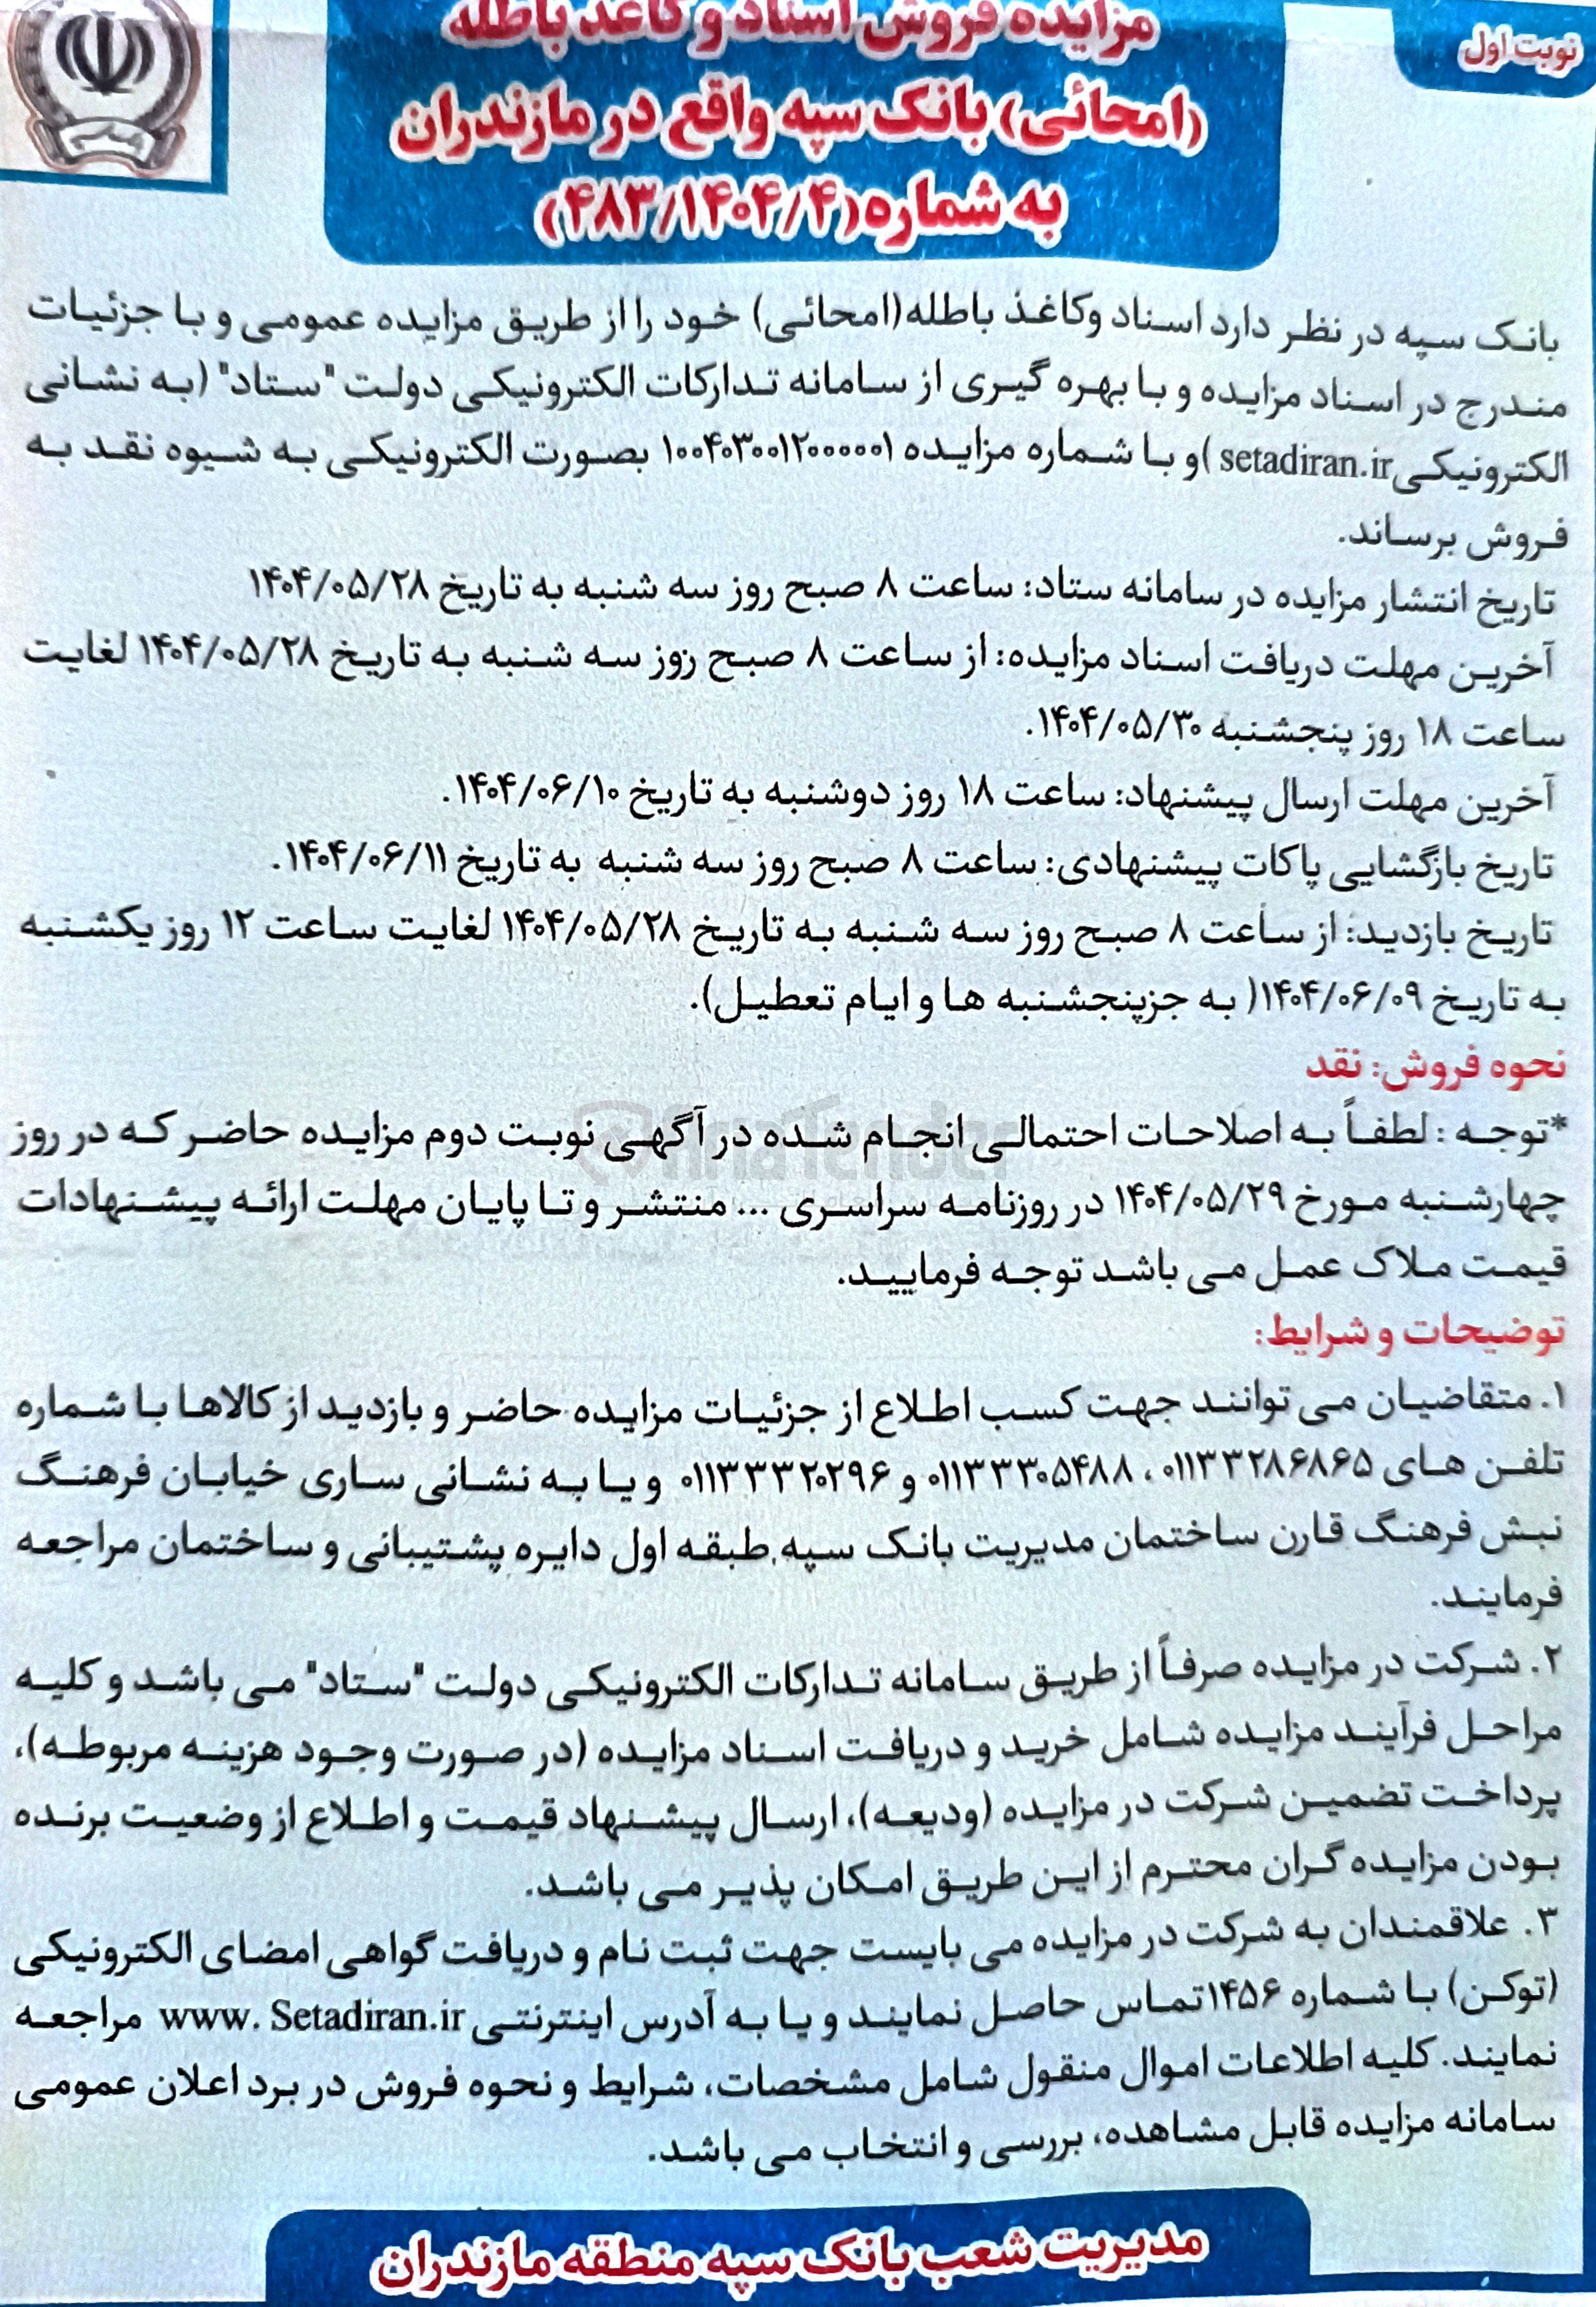 نوبت اول
مزایده فروش اسناد و کاغذ باطله
(امحائی) بانک سپه واقع در مازندران
به شماره (۴۸۳/۱۴۰۴/۴)
بانک سپه در نظر دارد اسناد وکاغذ باطله(امحائی) خود را از طریق مزایده عمومی و با جزئیات
مندرج در اسناد مزایده و با بهره گیری از سامانه تدارکات الکترونیکی دولت "ستاد" (به نشانی
الکترونیکی setadiran.ir )و با شماره مزایده ۱۰۰۴۰۳۰۰۱۲۰۰۰۰۰۱ بصورت الکترونیکی به شیوه نقد به
فروش برساند.
تاریخ انتشار مزایده در سامانه ستاد: ساعت ۸ صبح روز سه شنبه به تاریخ ۱۴۰۴/۰۵/۲۸
آخرین مهلت دریافت اسناد مزایده: از ساعت ۸ صبح روز سه شنبه به تاریخ ۱۴۰۴/۰۵/۲۸ لغایت
ساعت ۱۸ روز پنجشنبه ۱۴۰۴/۰۵/۳۰.
آخرین مهلت ارسال پیشنهاد: ساعت ۱۸ روز دوشنبه به تاریخ ۱۴۰۴/۰۶/۱۰.
تاریخ بازگشایی پاکات پیشنهادی: ساعت ۸ صبح روز سه شنبه به تاریخ ۱۴۰۴/۰۶/۱۱.
تاریخ بازدید: از ساعت ۸ صبح روز سه شنبه به تاریخ ۱۴۰۴/۰۵/۲۸ لغایت ساعت ۱۲ روز یکشنبه
به تاریخ ۱۴۰۴/۰۶/۰۹( به جزپنجشنبه ها و ایام تعطیل).
نحوه فروش: نقد
*توجه : لطفاً به اصلاحات احتمالی انجام شده در آگهی نوبت دوم مزایده حاضر که در روز
چهارشنبه مورخ ۱۴۰۴/۰۵/۲۹ در روزنامه سراسری ... منتشر و تا پایان مهلت ارائه پیشنهادات
قیمت ملاک عمل می باشد توجه فرمایید.
توضیحات و شرایط:
۱. متقاضیان می توانند جهت کسب اطلاع از جزئیات مزایده حاضر و بازدید از کالاها با شماره
تلفن های ۰۱۱۳۳۲۸۶۸۶۵ ، ۰۱۱۳۳۳۰۵۴۸۸ و ۰۱۱۳۳۳۲۰۲۹۶ و یا به نشانی ساری خیابان فرهنگ
نبش فرهنگ قارن ساختمان مدیریت بانک سپه,طبقه اول دایره پشتیبانی و ساختمان مراجعه
فرمایند.
۲. شرکت در مزایده صرفاً از طریق سامانه تدارکات الکترونیکی دولت "ستاد" می باشد و کلیه
مراحل فرآیند مزایده شامل خرید و دریافت اسناد مزایده (در صورت وجود هزینه مربوطه)،
پرداخت تضمین شرکت در مزایده (ودیعه)، ارسال پیشنهاد قیمت و اطلاع از وضعیت برنده
بودن مزایده گران محترم از این طریق امکان پذیر می باشد.
۳. علاقمندان به شرکت در مزایده می بایست جهت ثبت نام و دریافت گواهی امضای الکترونیکی
(توکن) با شماره ۱۴۵۶تماس حاصل نمایند و یا به آدرس اینترنتی www. Setadiran.ir مراجعه
نمایند. کلیه اطلاعات اموال منقول شامل مشخصات، شرایط و نحوه فروش در برد اعلان عمومی
سامانه مزایده قابل مشاهده، بررسی و انتخاب می باشد.
مدیریت شعب بانک سپه منطقه مازندران